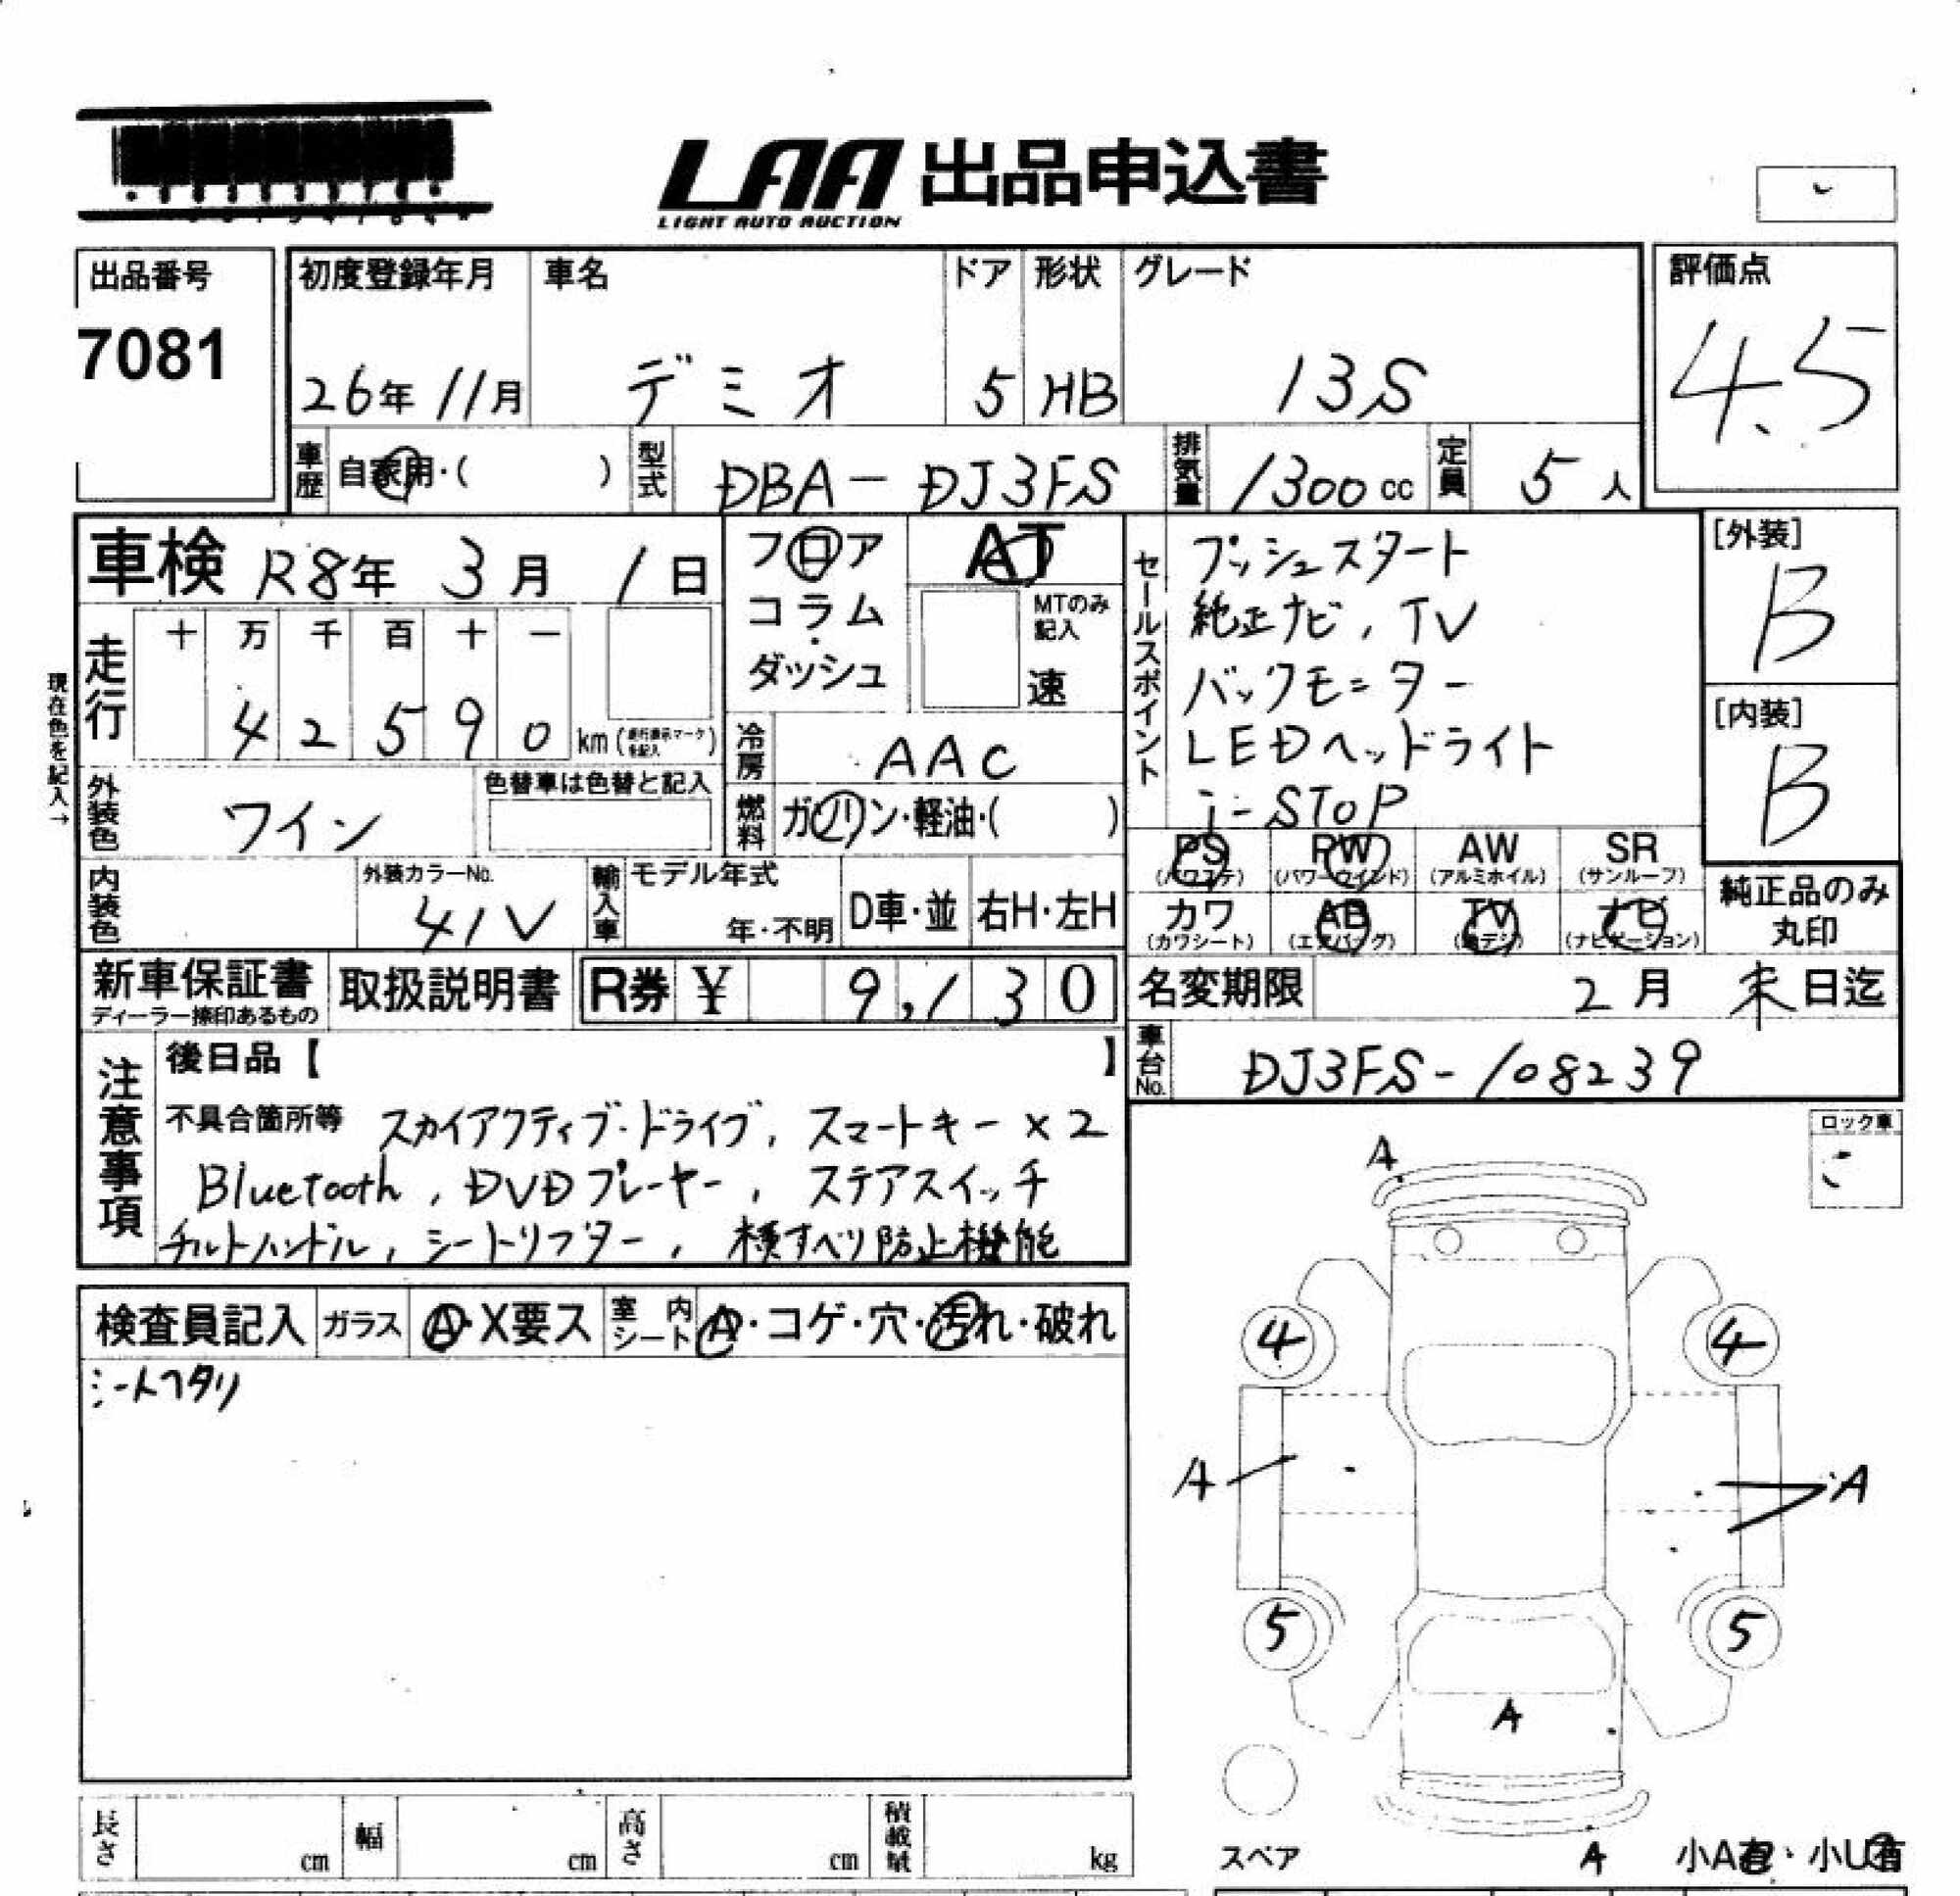 LAA 出品申込書
LIGHT AUTO AUCTION
出品番号
7081
初度登録年月 車名 ドア 形状 グレード
26年 11月 デミオ 5 HB 13S
評価点
4.5
車歴 自家用・( ) 型式 DBA-DJ3FS 排気量 1300cc 定員 5人
車検 R8年 3月 1日
フロア
コラム
・
ダッシュ
AT
MTのみ
記入
速
セールスポイント
プッシュスタート
純正ナビ, TV
バックモニター
LEDヘッドライト
i-STOP
[外装]
B
[内装]
B
走行
十 万 千 百 十 一
4 2 5 9 0 km
現在色を記入→
冷房 AAC
外装色 ワイン
色替車は色替と記入
燃料 ガソリン・軽油・( )
PS PW AW SR
(パワステ) (パワーウインド) (アルミホイル) (サンルーフ)
カワ AB TV ナビ
(カワシート) (エアバッグ) (地デジ) (ナビゲーション)
純正品のみ
丸印
内装色
外装カラーNo.
41V
輸入車 モデル年式
年・不明
D車・並 右H・左H
新車保証書
ディーラー捺印あるもの
取扱説明書
R券 ¥ 9,130
名変期限 2月 末日迄
車台No. DJ3FS-108239
注意事項
後日品【 】
不具合箇所等 スカイアクティブ・ドライブ, スマートキー×2
Bluetooth, DVDプレーヤー, ステアスイッチ
チルトハンドル, シートリフター, 横すべり防止機能
検査員記入 ガラス A・X要ス 室内シート A・コゲ・穴・汚れ・破れ
シートヘタリ
ロック車
A
4 4
A A
5 5
A
スペア
A
小A有・小U有
長さ cm 幅 cm 高さ cm 積載量 kg